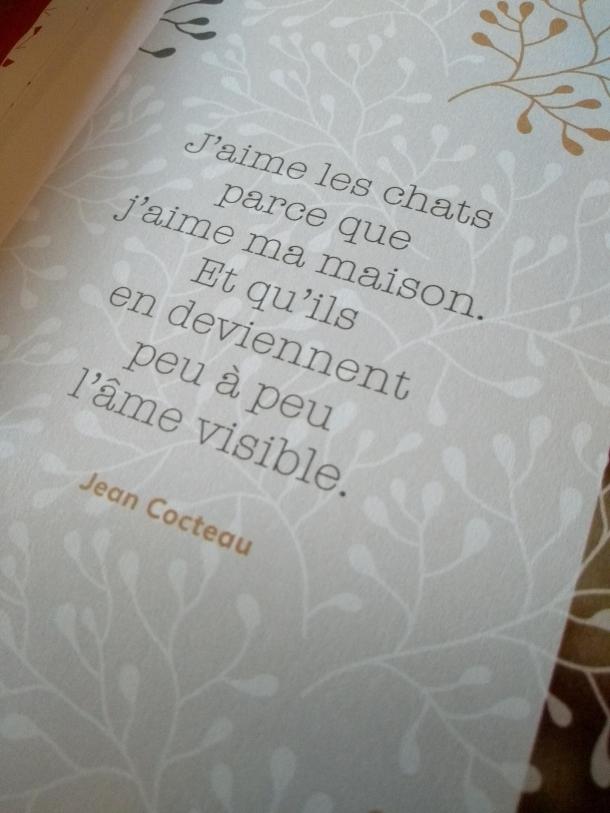 J'aime les chats
parce que
j'aime ma maison.
Et qu'ils
en deviennent
peu à peu
l'âme visible.
Jean Cocteau